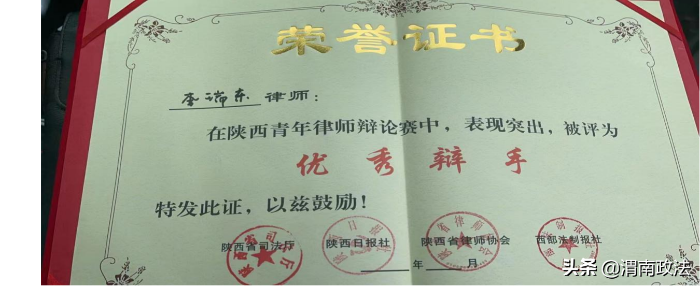 荣誉证书
李瑞东 律师:
在陕西青年律师辩论赛中，表现突出，被评为
优秀辩手
特发此证，以兹鼓励！
陕西省司法厅 陕西日报社 陕西省律师协会 西部法制报社
年 月
头条 @渭南政法